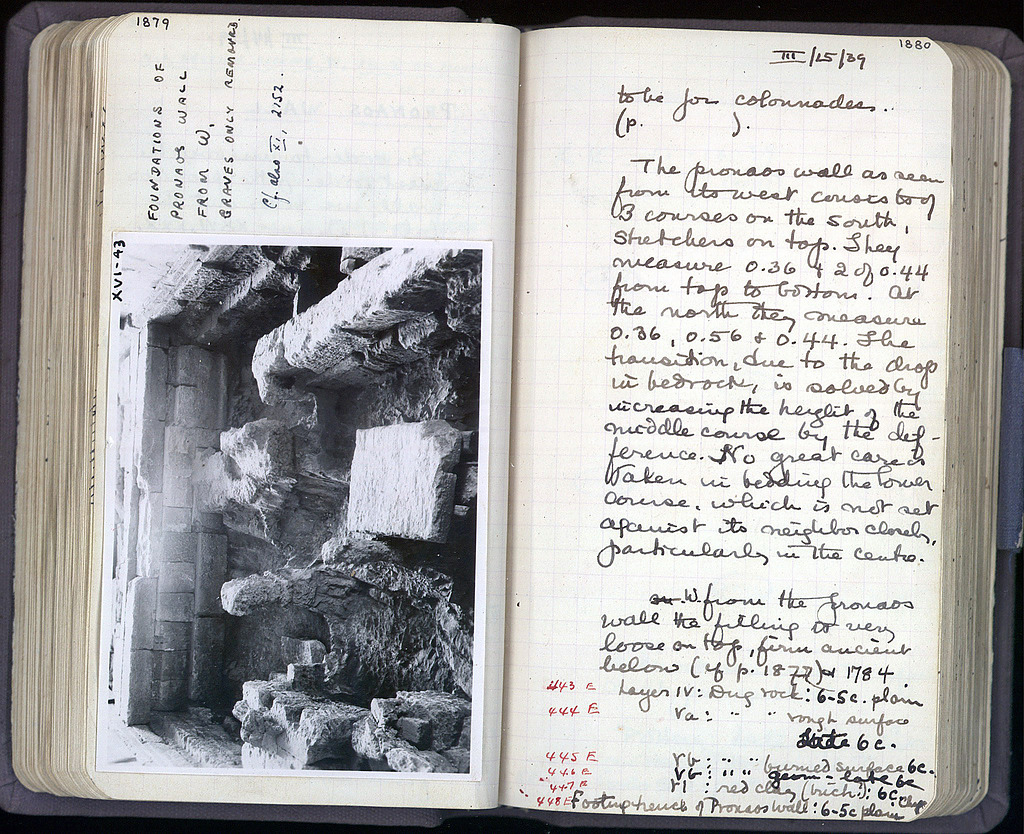 1879
FOUNDATIONS OF
PRONAOS WALL
FROM W.
GRAVES ONLY REMOVED.
Cf. also XI, 2152.
XVI-43
1880
III/15/39
to be for colonnades..
(p.          ).
The pronaos wall as seen
from its west consists of
3 courses on the south,
stretchers on top. They
measure 0.36 & 2 of 0.44
from top to bottom. At
the north they measure
0.36, 0.56 & 0.44. The
transition, due to the drop
in bedrock, is solved by
increasing the height of the
middle course by the dif-
ference. No great care is
taken in bedding the lower
course, which is not set
against its neighbor closely,
particularly in the centre.
W. from the pronaos
wall the filling is very
loose on top, firm ancient
below (cf p. 1877) & 1784.
443 E Layer IV: Dug rock: 6-5c. plain
444 E Va: " " rough surface
6c.
445 E Vb: " " burned surface 6c.
446 E Vb: " " geom - late 6c
447 E VI: red clay (brick): 6c.
448 E Footing trench of Pronaos wall: 6-5c plain